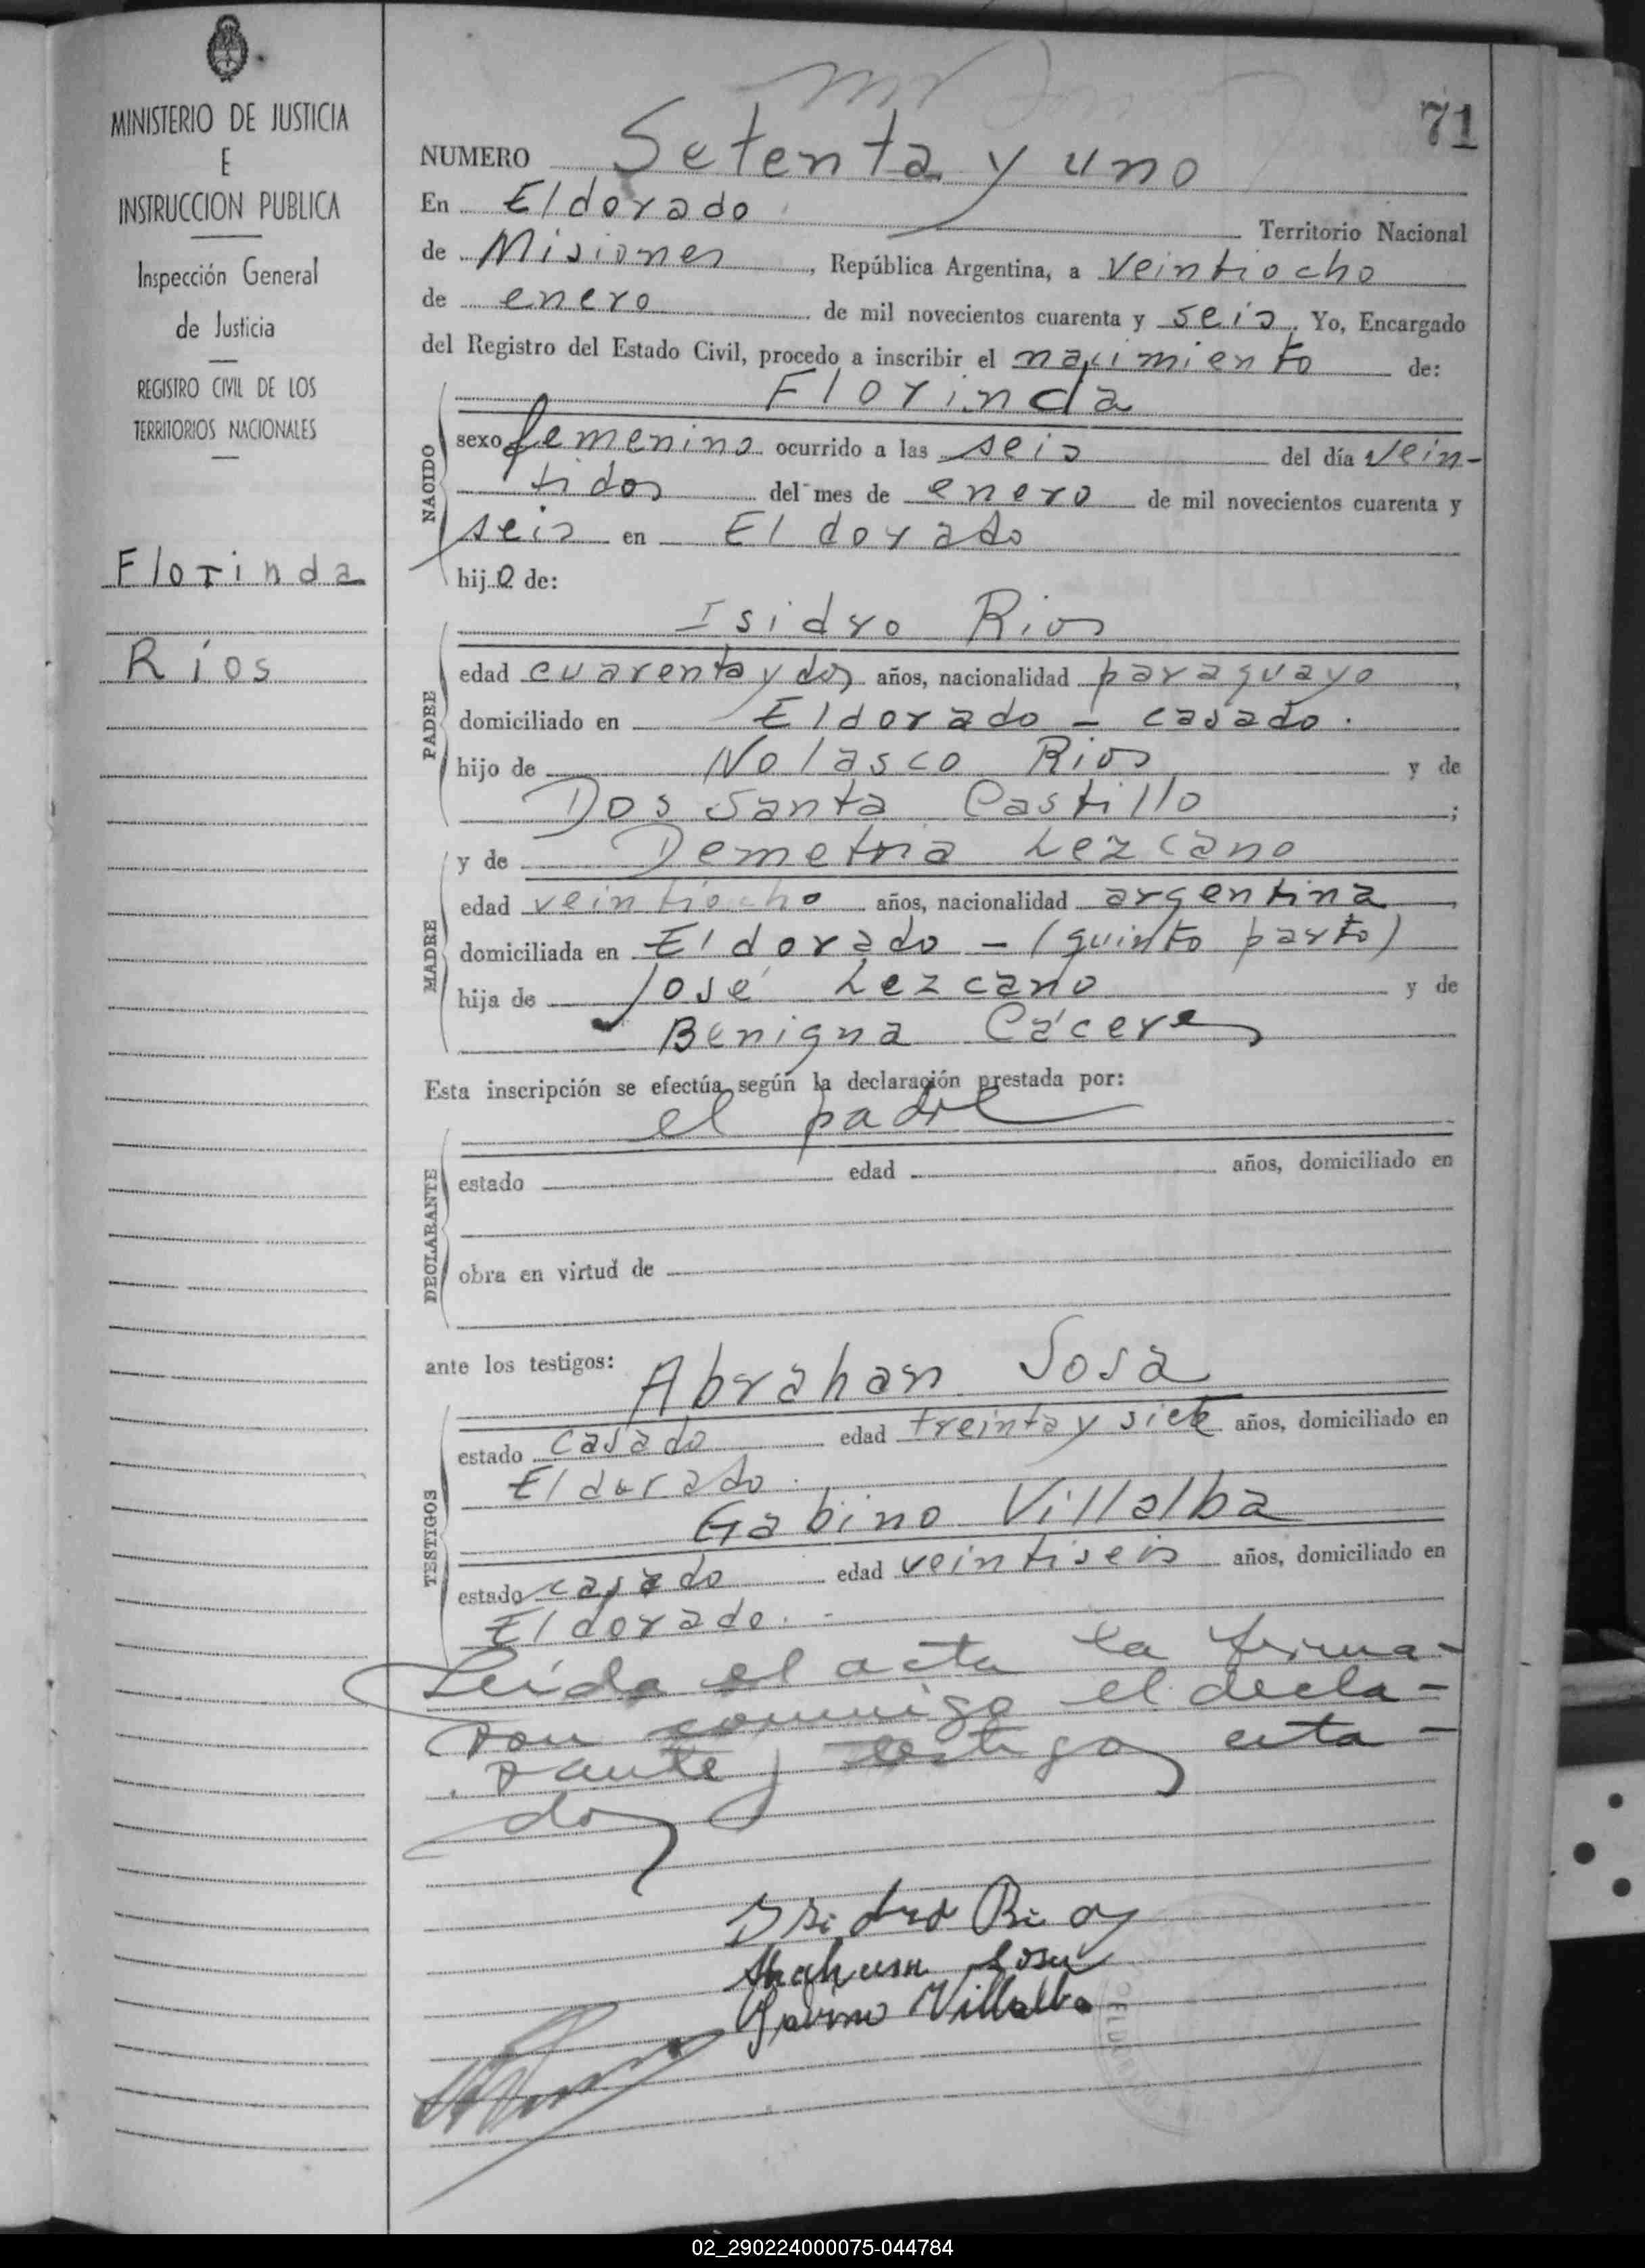 MINISTERIO DE JUSTICIA
E
INSTRUCCION PUBLICA
Inspección General
de Justicia
REGISTRO CIVIL DE LOS
TERRITORIOS NACIONALES
Florinda
Ríos
71
NUMERO Setenta y uno
En Eldorado Territorio Nacional
de Misiones, República Argentina, a veintiocho
de enero de mil novecientos cuarenta y seis. Yo, Encargado
del Registro del Estado Civil, procedo a inscribir el nacimiento de:
Florinda
NACIDO
sexo femenino ocurrido a las seis del día vein-
tidos del mes de enero de mil novecientos cuarenta y
seis en Eldorado
hija de:
Isidro Rios
PADRE
edad cuarenta y dos años, nacionalidad paraguayo,
domiciliado en Eldorado - casado.
hijo de Nolasco Rios y de
Dos Santa Castillo;
y de Demetria Lezcano
MADRE
edad veintiocho años, nacionalidad argentina,
domiciliada en Eldorado - (quinto parto)
hija de José Lezcano y de
Benigna Cáceres
Esta inscripción se efectúa según la declaración prestada por:
el padre
DECLARANTE
estado edad años, domiciliado en
obra en virtud de
ante los testigos: Abrahan Sosa
TESTIGOS
estado casado edad treinta y siete años, domiciliado en
Eldorado.
Gabino Villalba
estado casado edad veintiseis años, domiciliado en
Eldorado.-
Leída el acta la firma-
ron conmigo el decla-
rante y testigos cita-
dos
Isidro Rios
Abraham Sosa
Gabino Villalba
02_290224000075-044784